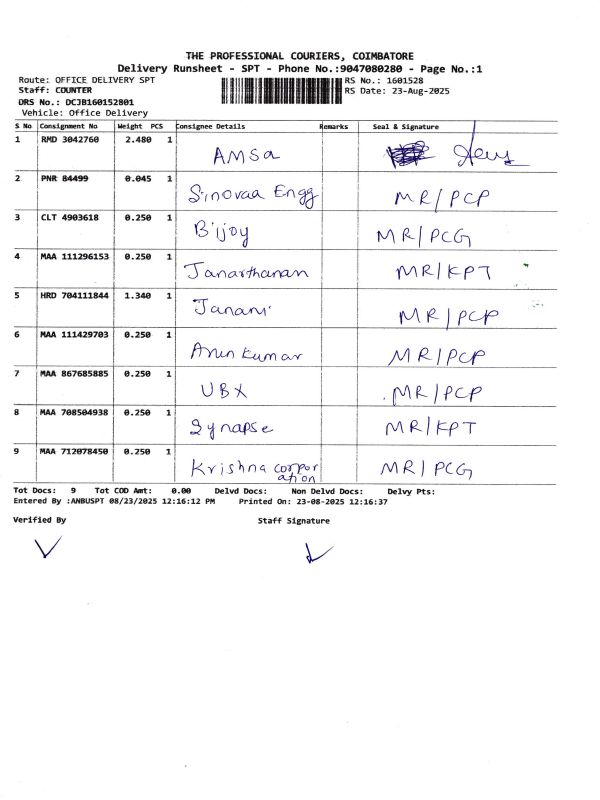 THE PROFESSIONAL COURIERS, COIMBATORE
Delivery Runsheet - SPT - Phone No.:9047080280 - Page No.:1
Route: OFFICE DELIVERY SPT RS No.: 1601528
Staff: COUNTER RS Date: 23-Aug-2025
DRS No.: DCJB160152801
Vehicle: Office Delivery
S No Consignment No Weight PCS Consignee Details Remarks Seal & Signature
1 RMD 3042760 2.480 1 AMSa
2 PNR 84499 0.045 1 Sinovaa Engg MR/PCP
3 CLT 4903618 0.250 1 Bijoy MR/PCG
4 MAA 111296153 0.250 1 Janarthanan MR/KPT
5 HRD 704111844 1.340 1 Janani MR/PCP
6 MAA 111429703 0.250 1 Arun Kumar MR/PCP
7 MAA 867685885 0.250 1 UBX MR/PCP
8 MAA 708504938 0.250 1 Synapse MR/KPT
9 MAA 712078450 0.250 1 Krishna corpor MR/PCG
ation
Tot Docs: 9 Tot COD Amt: 0.00 Delvd Docs: Non Delvd Docs: Delvy Pts:
Entered By :ANBUSPT 08/23/2025 12:16:12 PM Printed On: 23-08-2025 12:16:37
Verified By Staff Signature